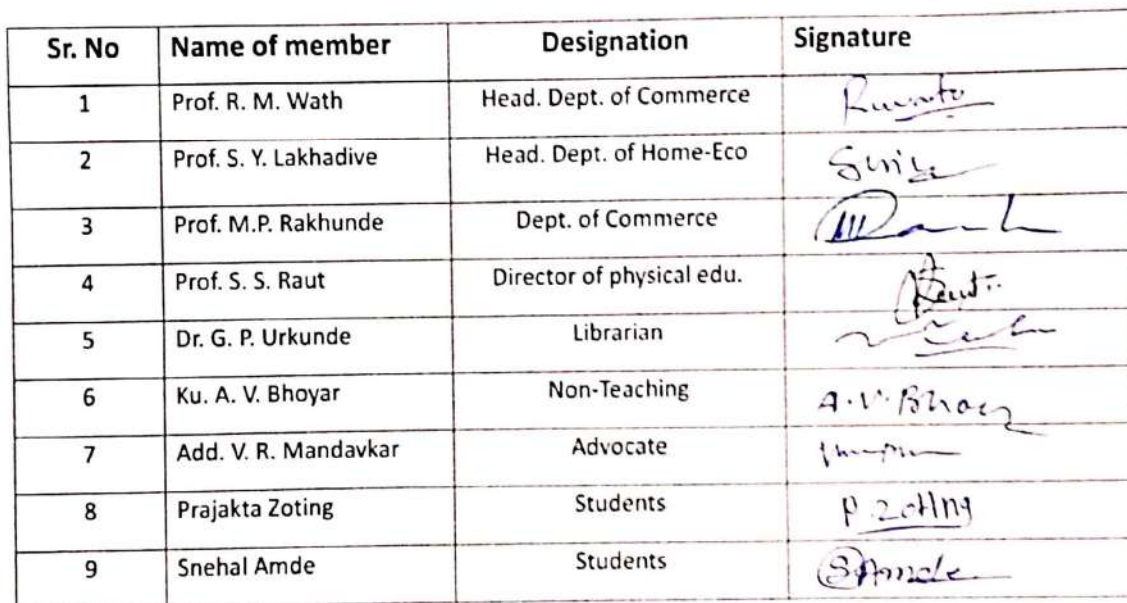 Sr. No Name of member Designation Signature
1 Prof. R. M. Wath Head. Dept. of Commerce
2 Prof. S. Y. Lakhadive Head. Dept. of Home-Eco
3 Prof. M.P. Rakhunde Dept. of Commerce
4 Prof. S. S. Raut Director of physical edu. Raut
5 Dr. G. P. Urkunde Librarian
6 Ku. A. V. Bhoyar Non-Teaching A.V. Bhoyar
7 Add. V. R. Mandavkar Advocate
8 Prajakta Zoting Students P. Zoting
9 Snehal Amde Students SAmde